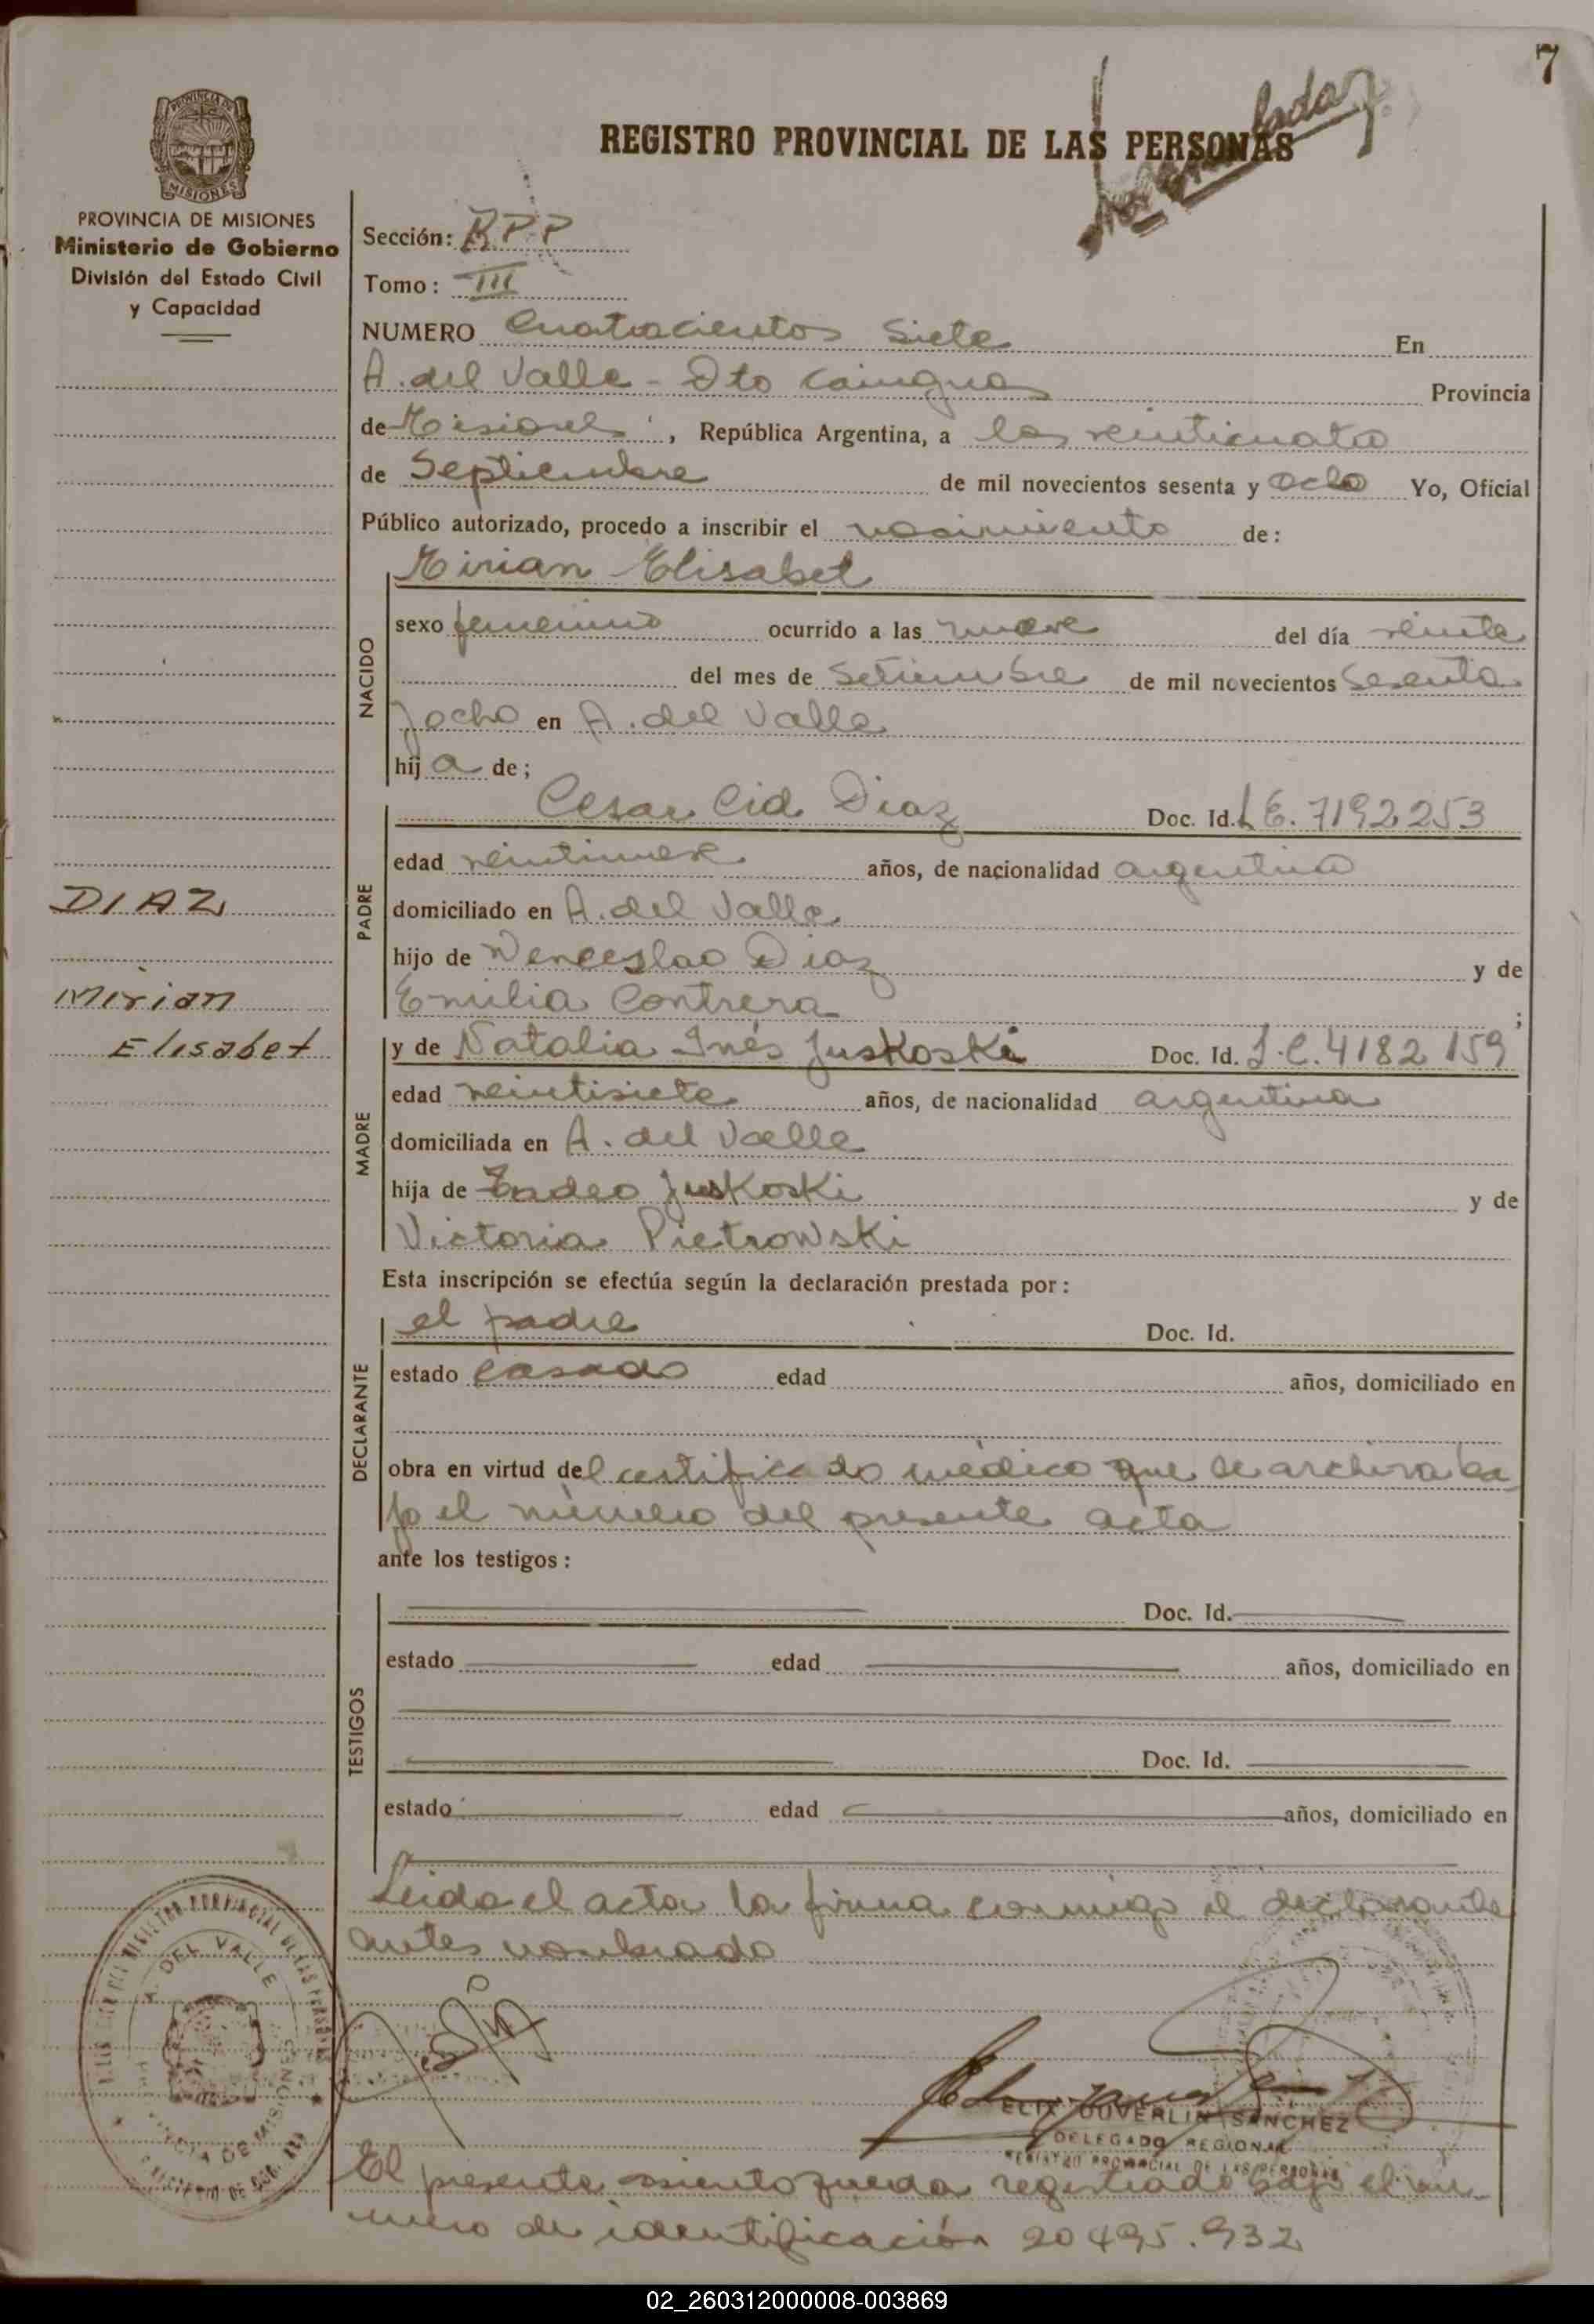 7
REGISTRO PROVINCIAL DE LAS PERSONAS
PROVINCIA DE MISIONES
Ministerio de Gobierno
División del Estado Civil
y Capacidad
Sección: RPP
Tomo: III
NUMERO Cuatrocientos Siete En
A. del Valle - Dto Cainguas Provincia
de Misiones, República Argentina, a los veinticuatro
de Septiembre de mil novecientos sesenta y ocho Yo, Oficial
Público autorizado, procedo a inscribir el nacimiento de:
Mirian Elisabet
NACIDO
sexo femenino ocurrido a las nueve del día veinte
del mes de Setiembre de mil novecientos sesenta
y ocho en A. del Valle
hija de;
Cesar Cid Diaz Doc. Id. L E. 7192253
PADRE
edad veintinueve años, de nacionalidad argentina
DIAZ
domiciliado en A. del Valle
hijo de Wenceslao Diaz y de
Mirian
Emilia Contrera ;
Elisabet
y de Natalia Inés Juskoski Doc. Id. L.C. 4182159
MADRE
edad veintisiete años, de nacionalidad argentina
domiciliada en A. del Valle
hija de Tadeo Juskoski y de
Victoria Pietrowski
Esta inscripción se efectúa según la declaración prestada por:
el padre Doc. Id.
DECLARANTE
estado casado edad años, domiciliado en
obra en virtud del certificado médico que se archiva ba
jo el número del presente acta
ante los testigos:
Doc. Id.
TESTIGOS
estado edad años, domiciliado en
Doc. Id.
estado edad años, domiciliado en
Leida el acta la firma conmigo el declarante
antes nombrado
A. DEL VALLE
FELIX DUVERLIN SANCHEZ
DELEGADO REGIONAL
REGISTRO PROVINCIAL DE LAS PERSONAS
El presente asiento queda registrado bajo el nu
mero de identificación 20495.932
02_260312000008-003869